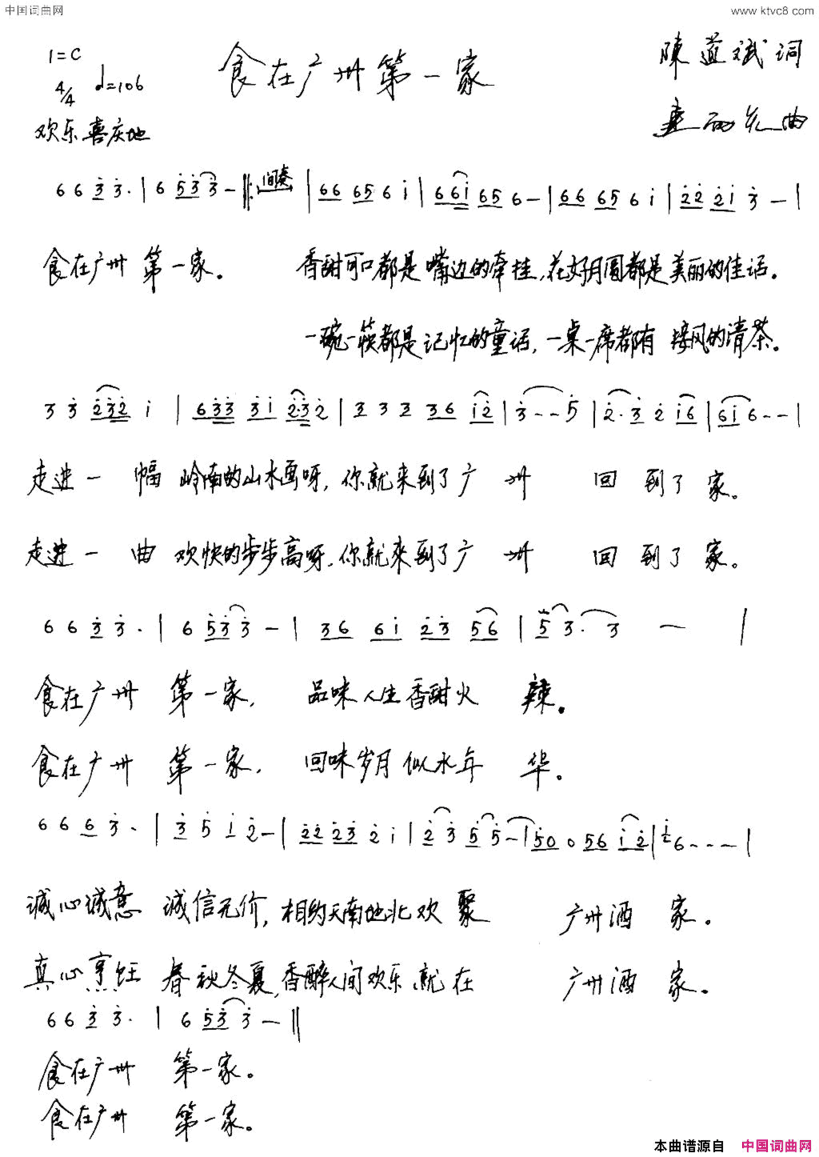 中国词曲网
www.ktvc8.com
1=C
食在广州第一家
陳道斌词
4/4 ♩=106
曲
欢乐喜庆地
6 6 3 3· | 6 5 3 3 - ‖: 间奏 | 6 6 6 5 6 i | 6 6 i 6 5 6 - | 6 6 6 5 6 i | 2 2 2 i 3 - |
食在广州 第一家。 香甜可口都是嘴边的牵挂,花好月圆都是美丽的佳话。
一碗一筷都是记忆的童话,一桌一席都有接风的清茶。
3 3 2 3 2 i | 6 3 3 3 i 2·3 2 | 3 3 3 3 6 i 2 | 3 - - 5 | 2·3 2 i 6 | 6 i 6 - - |
走进一 幅 岭南的山水画呀,你就来到了广 州 回 到了 家。
走进一 曲 欢快的步步高呀,你就來到了广 州 回 到了 家。
6 6 3 3· | 6 5 3 3 - | 3 6 6 i 2 3 5 6 | 5 3· 3 - |
食在广州 第一家, 品味人生香甜火 辣。
食在广州 第一家, 回味岁月似水年 华。
6 6 6 3· | 3 5 i 2 - | 2 2 2 3 2 i | 2 3 5 5 - | 5 0 0 5 6 i 2 | 2 6 - - - |
诚心诚意 诚信无价,相约天南地北欢 聚 广州酒 家。
真心烹饪 春秋冬夏,香醉人间欢乐就在 广州酒 家。
6 6 3 3· | 6 5 3 3 - ‖
食在广州 第一家。
食在广州 第一家。
本曲谱源自 中国词曲网